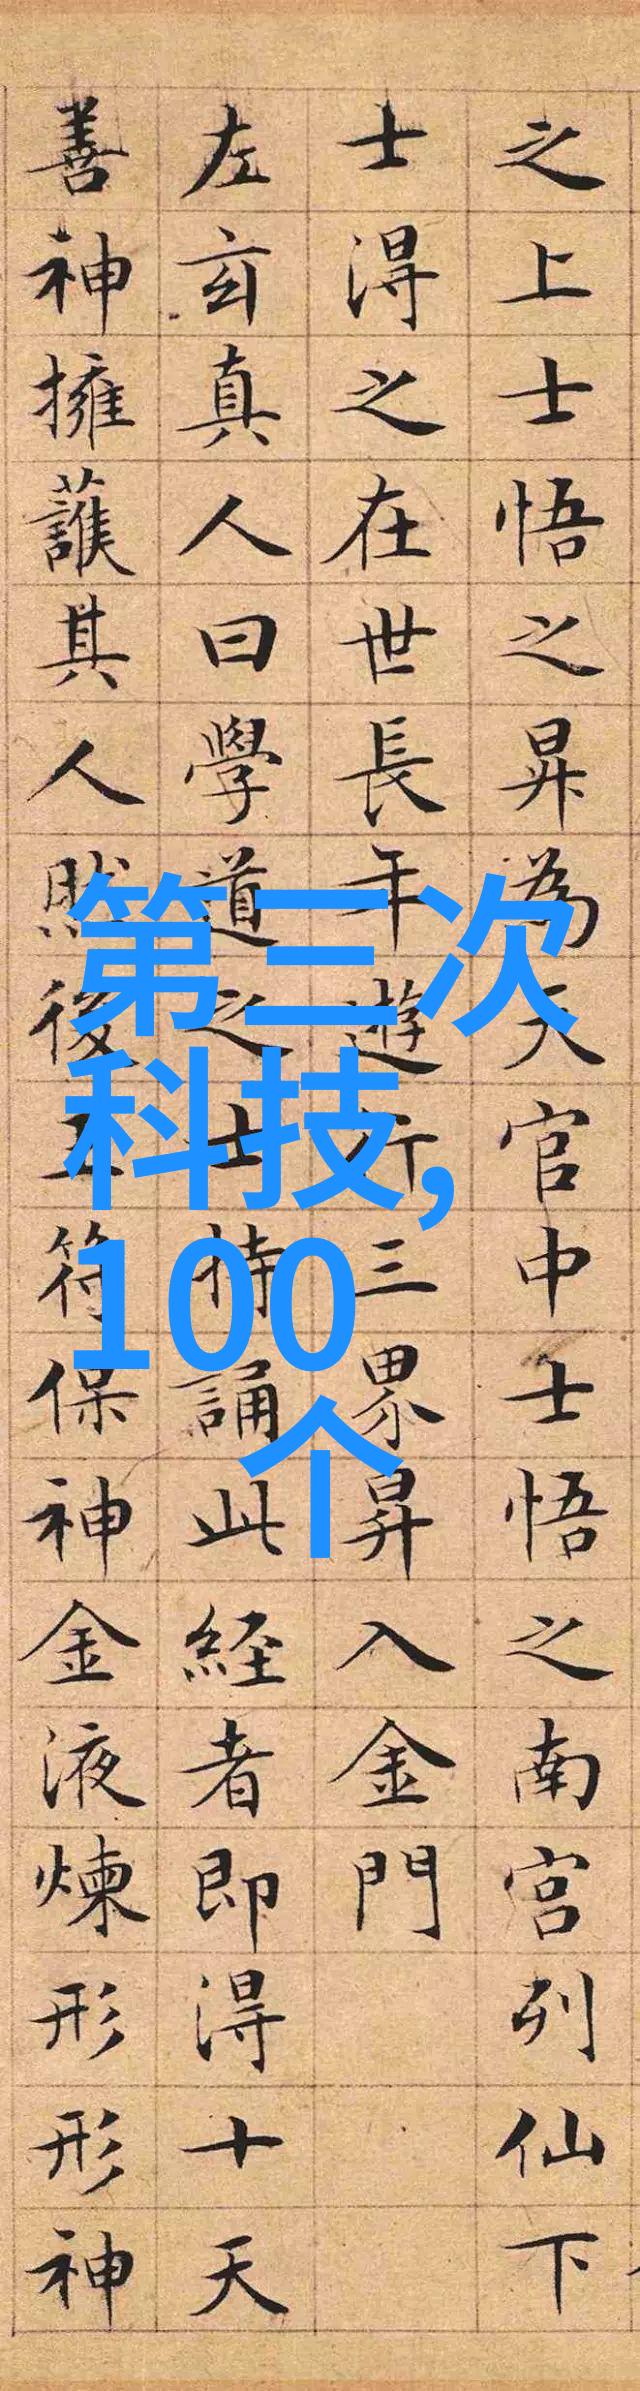 之上士悟之昇為天官中士悟之南宮列仙下
士得之在世長年遊行三界昇入金門
左玄真人曰學道之士持誦此經者即得十天
善神擁護其人然後玉符保神金液煉形形神
第三次
科技,
100
个